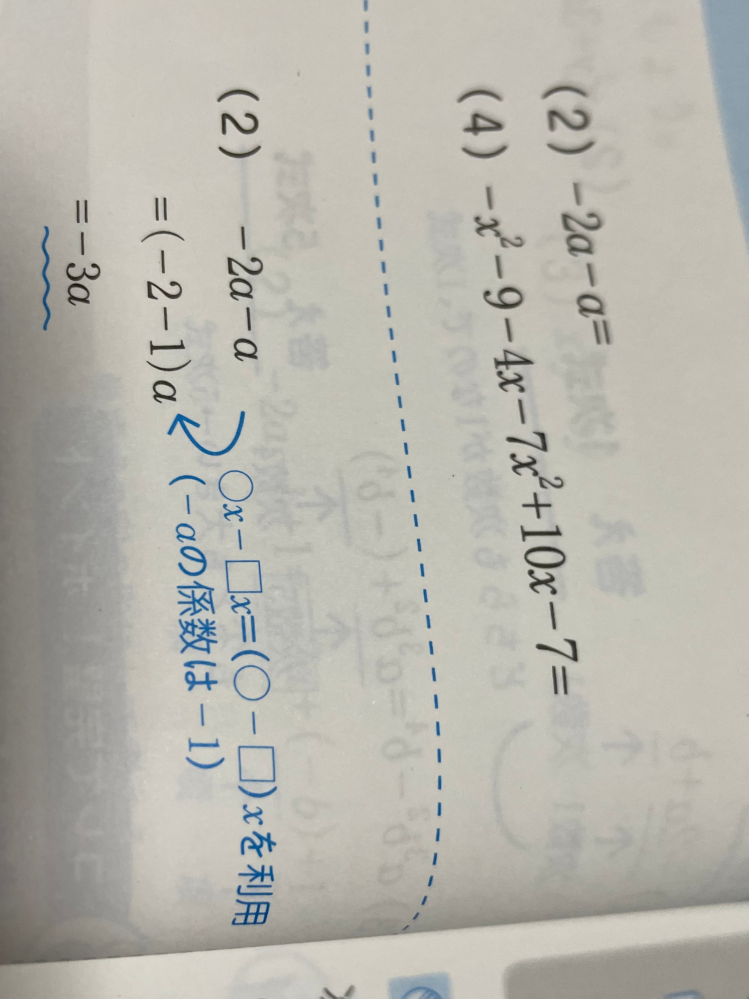 (2) -2a-a=
(4) -x²-9-4x-7x²+10x-7=
(2) -2a-a
○x-□x=(○-□)xを利用
=(-2-1)a
(-aの係数は-1)
=-3a